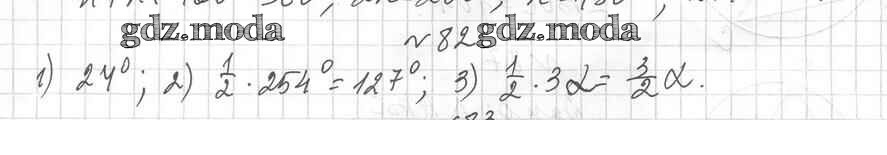 gdz.moda №82 gdz.moda
1) 24°; 2) 1/2 · 254° = 127°; 3) 1/2 · 3α = 3/2 α.